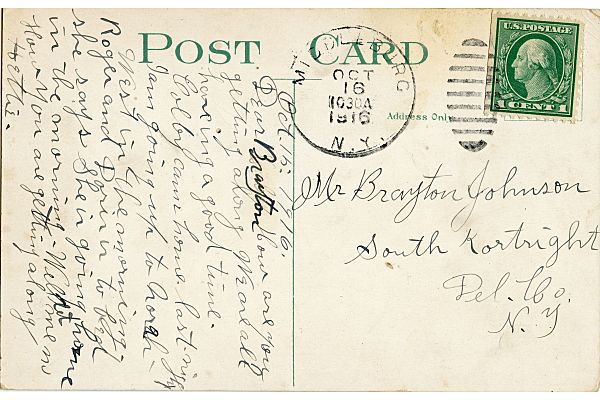 POST CARD
MIDDLEBURG
OCT
16
1030A
1916
N.Y.
U.S. POSTAGE
1 CENT 1
Address Only
Mr Brayton Johnson
South Kortright
Del. Co.
N. Y
Oct. 15. 1916.
Dear Brayton how are you
getting along. We are all
having a good time.
Colby came home last night
I am going up to Norah
West in the morning.
Roger and Doris in to bed
she says She is going home
in the morning. Write me
how you are getting along